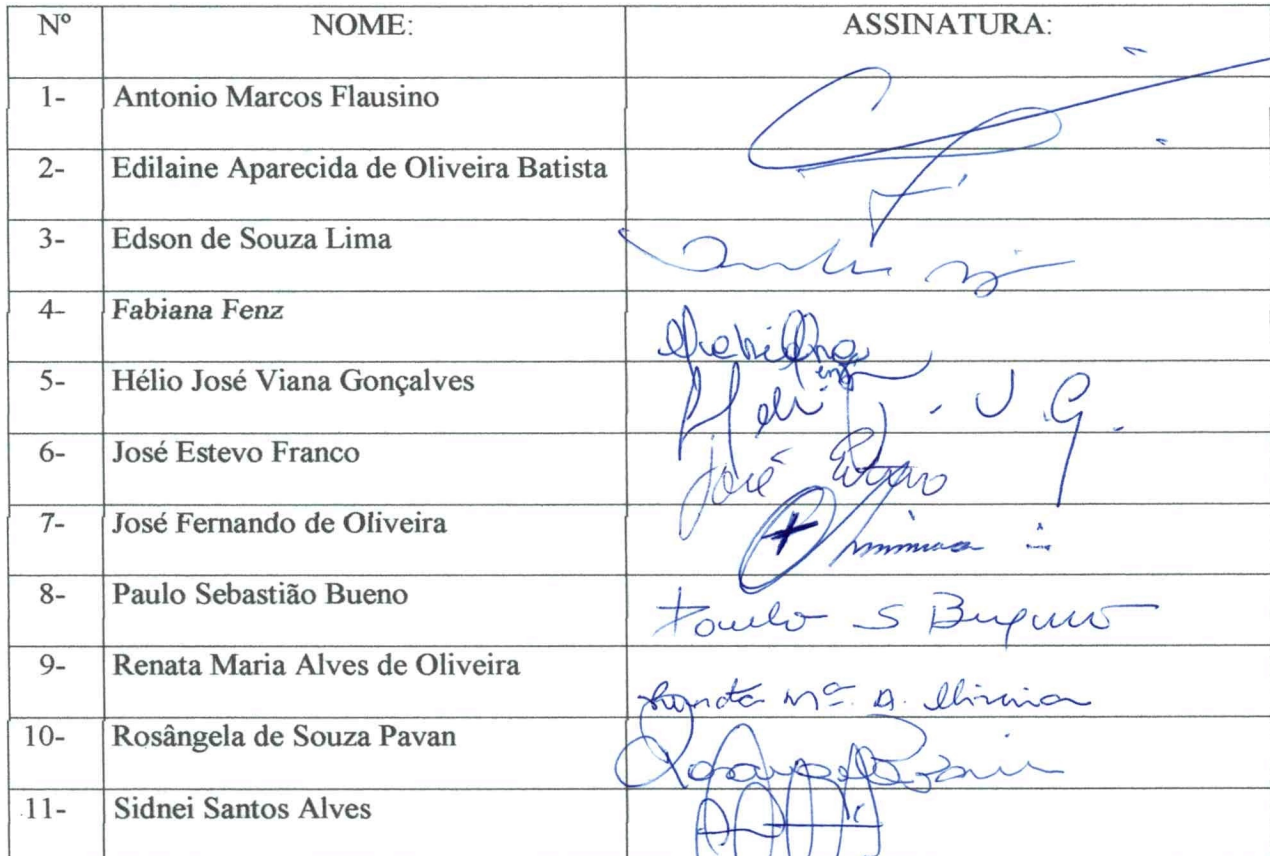 Nº NOME: ASSINATURA:
1- Antonio Marcos Flausino
2- Edilaine Aparecida de Oliveira Batista
3- Edson de Souza Lima
4- Fabiana Fenz
5- Hélio José Viana Gonçalves
6- José Estevo Franco José
7- José Fernando de Oliveira
8- Paulo Sebastião Bueno Paulo S Bueno
9- Renata Maria Alves de Oliveira Renata Mª. A. Oliveira
10- Rosângela de Souza Pavan
11- Sidnei Santos Alves